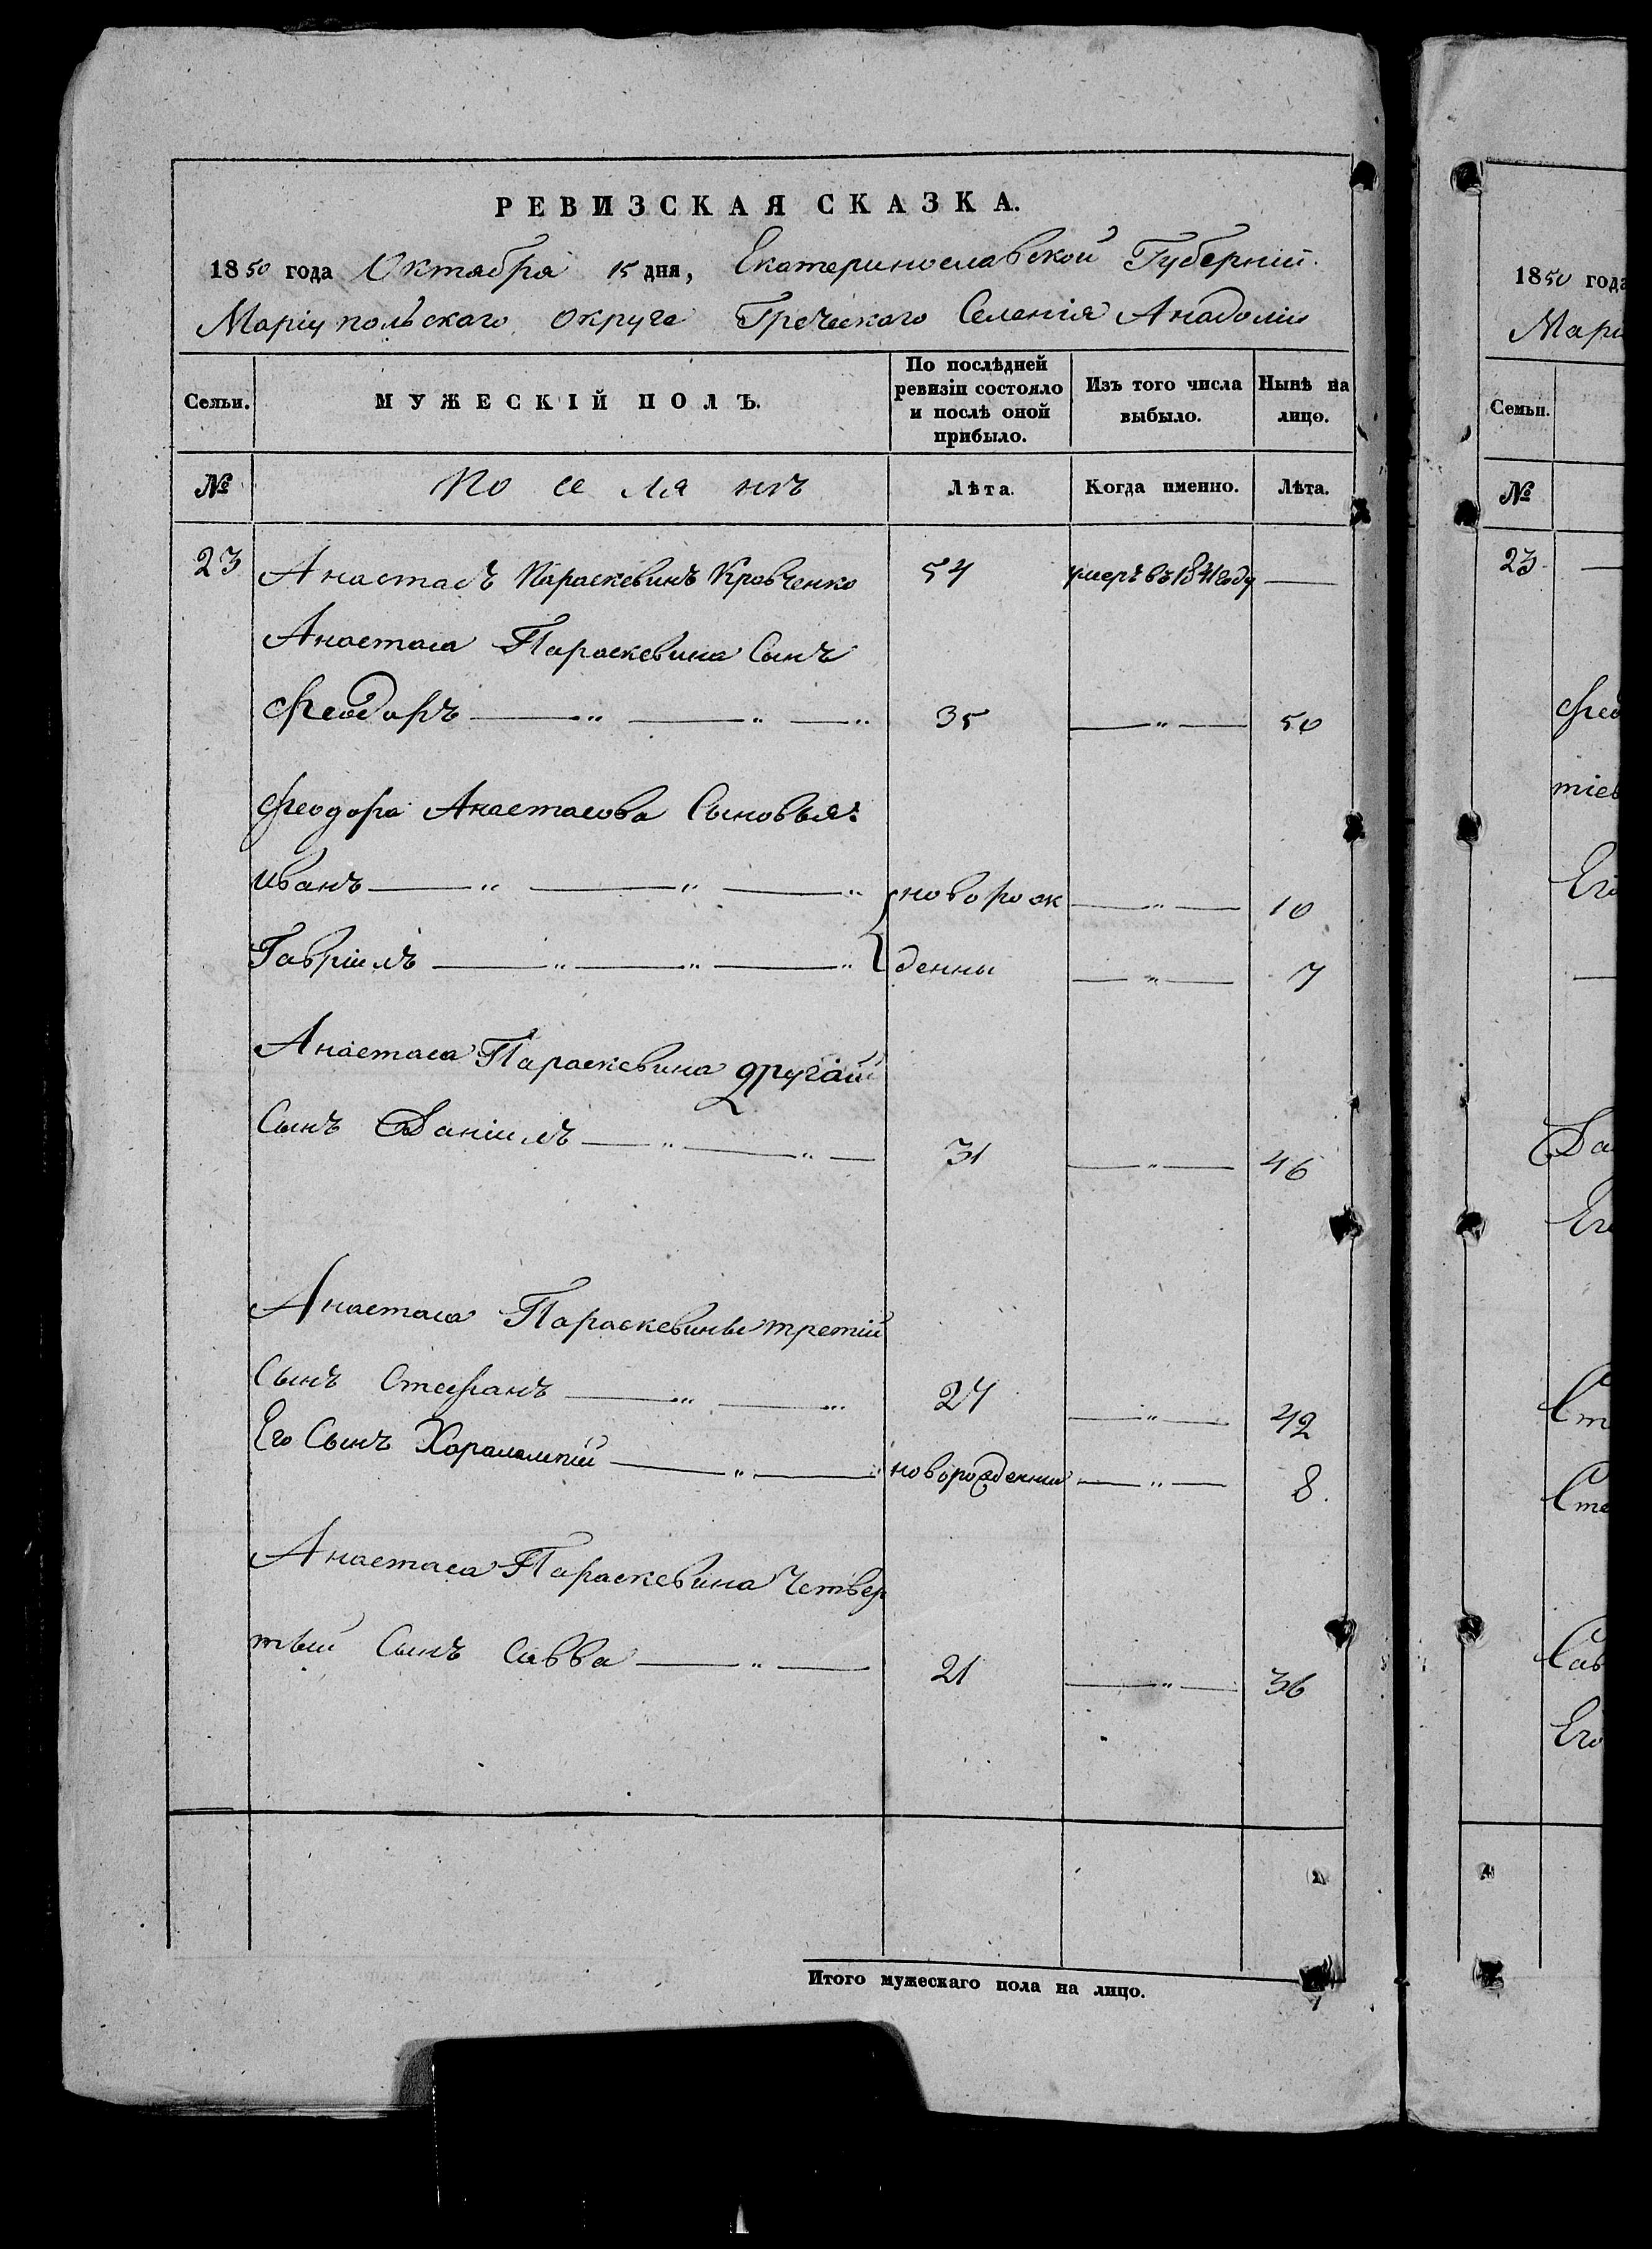 РЕВИЗСКАЯ СКАЗКА.
1850 года Октября 15 дня, Екатеринославской Губерніи.
Маріупольскаго округа Греческаго Селенія Анадоліи
Семьи.
МУЖЕСКІЙ ПОЛЪ.
По послѣдней ревизіи состояло и послѣ оной прибыло.
Изъ того числа выбыло.
Нынѣ на лицо.
№
По се ля нъ
Лѣта.
Когда именно.
Лѣта.
23 Анастасъ Параскевинъ Кравченко 54 умеръ въ 1841 году —
Анастаса Параскевина Сынъ
Феодоръ — " — " — " 35 — " — 50
Феодора Анастасова Сыновья:
Иванъ — " — " — " новорож — " — 10
Гавріилъ — " — " — " денны — " — 7
Анастаса Параскевина другій
Сынъ Даніилъ — " — " — 31 — " — 46
Анастаса Параскевины третій
Сынъ Стефанъ — " — " 27 — " — 42
Его Сынъ Харалампій — " — " новорожденны — " — 8.
Анастаса Параскевина Четвер
тый Сынъ Савва — " — 21 — " — 36
Итого мужескаго пола на лицо.
1850 года
Мари
Семьи.
№
23 —
Фео
тіев
Его
—
Да
Его
Ст
Сте
Сав
Его